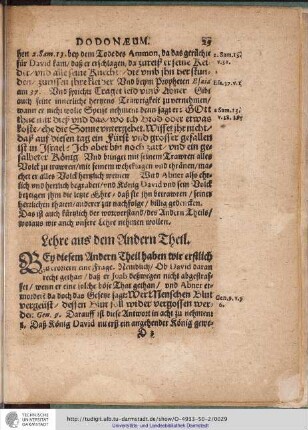 DODONÆUM. 29
hen 2. Sam. 13. bey dem Tode des Ammon, da das gerüchte
für David kam, daß er erschlagen, da zureiß er seine Klei-
der, vnd alle seine Knecht, die vmb ihn her stun-
den, zurissen ihre kleider Vnd beym Propheten Esaia
am 37. Vnd spricht Traget leid vmb Abner Gibt
auch seine innerliche hertzens Trawrigkeit zu vernehmen/
wann er auch wolte Speise nehmen dann sagt er: GOtt
thue mir dieß vnd das, wo ich Brod oder etwas
koste, ehe die Sonne vntergehet. Wisset ihr nicht/
daß auff diesen tag ein Fürst vnd grosser gefallen
ist in Israel: Ich aber bin noch zart, vnd ein ge-
salbeter König. Vnd bringet mit seinem Trawren alles
Volck zu trawren, mit seinem
het er alles Volck hertzlich weinen Vnd Abner also ehr-
lich vnd herrlich begraben, vnd König David mit sein Volck
bezeugen ihm die letzte Ehre, daß sie ihn betrawren, seiner
herrlichen thaten, anderer zur nachfolge, billig gedencken.
Das ist auch fürtzlich der wortverstand, des Andern Theils/
woraus wir auch vnsere Lehre nehmen wollen.
Lehre aus dem Andern Theil.
BEy diesem Andern Theil haben wir erstlich
zu erörtern eine Frage. Nemblich, Ob David daran
recht gethan, daß er Joab deßwegen nicht abgestraf-
fet, wenn er eine solche böse That gethan, vnd Abner er-
mordert da doch das Gesetze sagt: Wer Menschen Blut
vergeust, dessen Blut soll wider vergossen wer-
de: Gen. 9. Darauff ist diese Antwort in acht zu nehmen
1. Daß König David nu erst ein angehender König gewe-
D 3
2. Sam. 13,
v. 31.
Esa. 37. v. 1
2. Sam. 13,
Gen. 9. v.
6.
TECHNISCHE
UNIVERSITÄT
DARMSTADT
http://tudigit.ulb.tu-darmstadt.de/show/G-4913-50-2/0029
Universitäts- und Landesbibliothek Darmstadt